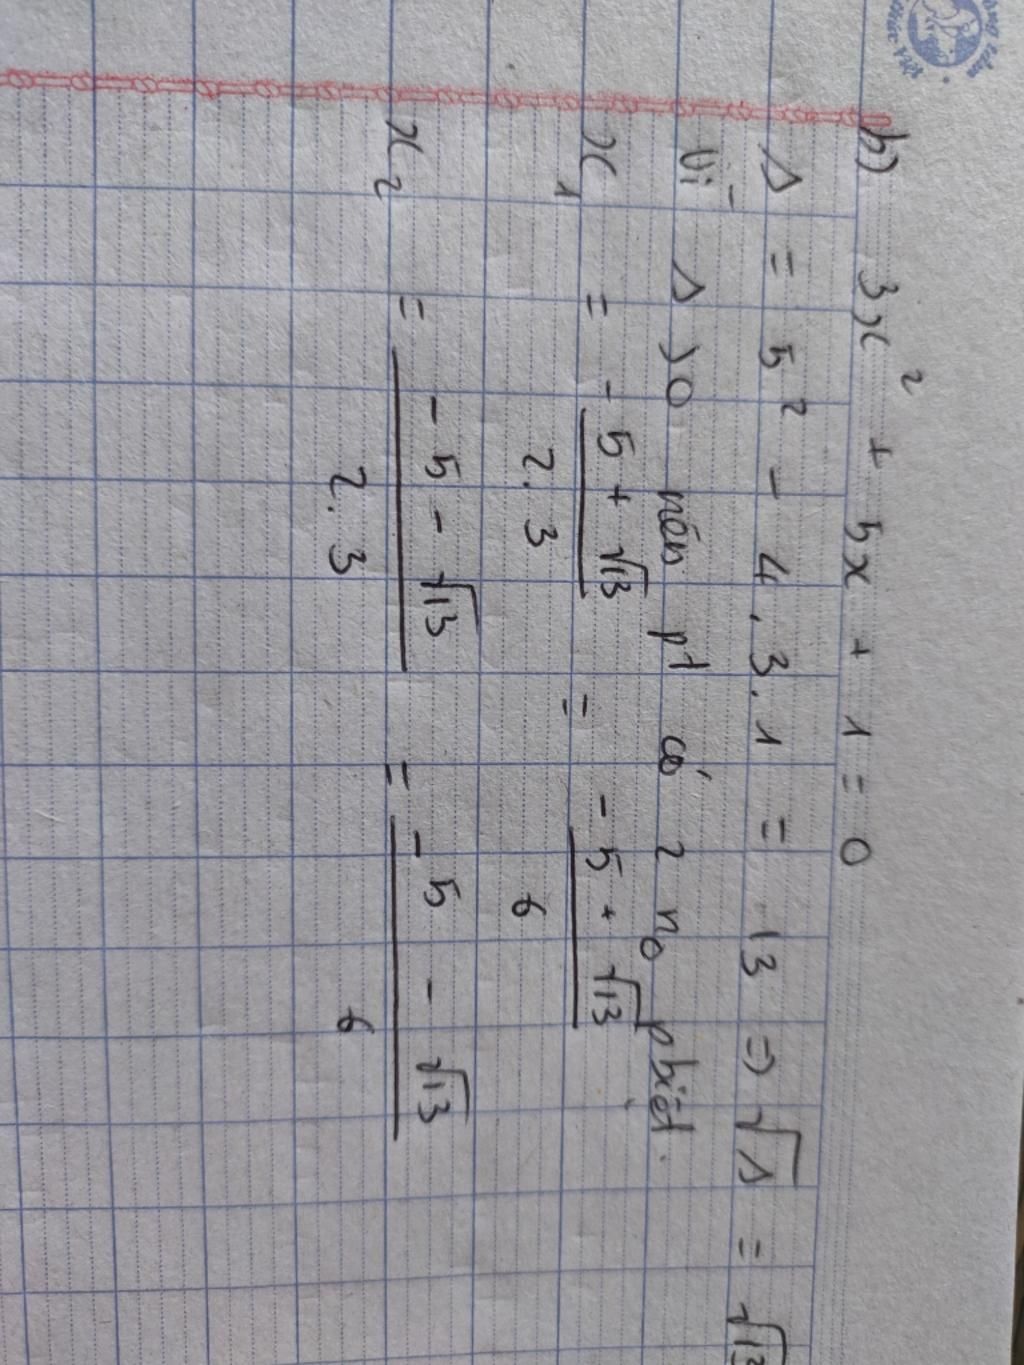 b) 3x² + 5x + 1 = 0
Δ = 5² - 4.3.1 = 13 => √Δ = √13
Vì Δ > 0 nên pt có 2 n₀ pbiệt.
x₁ = -5 + √13 / 2.3 = -5 + √13 / 6
x₂ = -5 - √13 / 2.3 = -5 - √13 / 6